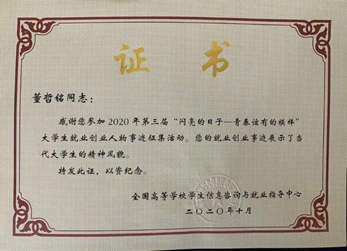 证 书
董哲铭同志：
感谢您参加2020年第三届“闪亮的日子—青春该有的模样”
大学生就业创业人物事迹征集活动。您的就业创业事迹展示了当
代大学生的精神风貌。
特发此证，以资纪念。
全国高等学校学生信息咨询与就业指导中心
二〇二〇年十月